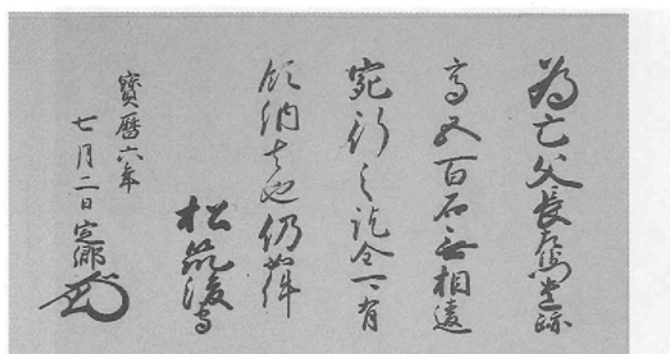 為亡父長左衛門遺跡
高五百石無相違
宛行之訖令一有
領納者也仍如件
松筑後守
寶暦六年
七月二日定郷